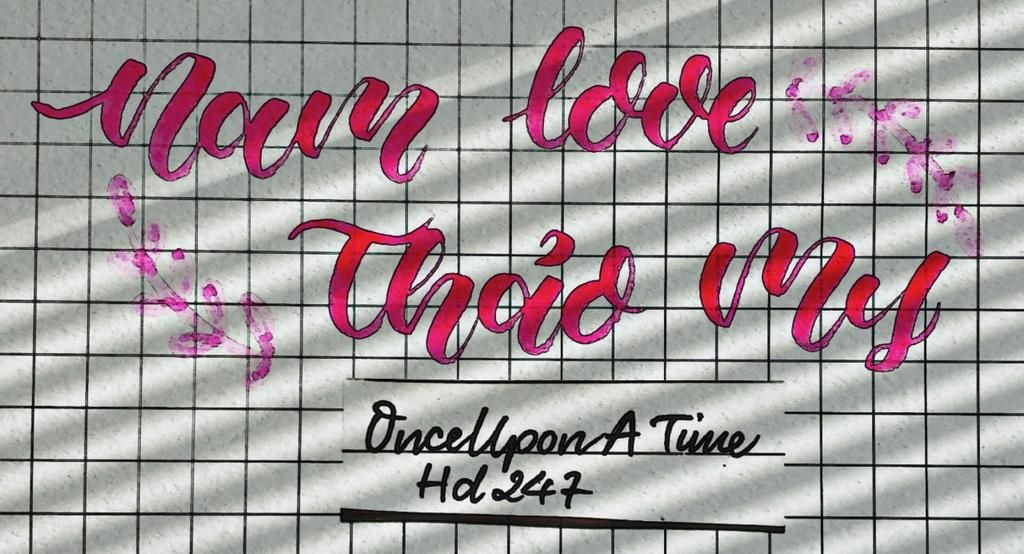 Nam love
Thảo My
OnceUpon A Time
Hd 247